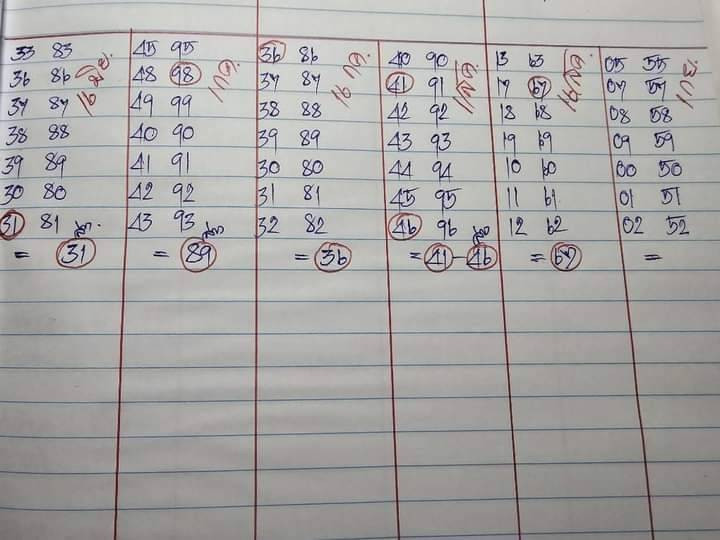 33 83 45 95 36 86 40 90 13 63 05 55
36 86 48 98 37 87 41 91 17 67 07 57
37 87 49 99 38 88 42 92 18 68 08 58
38 88 40 90 39 89 43 93 19 69 09 59
39 89 41 91 30 80 44 94 10 60 00 50
30 80 42 92 31 81 45 95 11 61 01 51
31 81 43 93 32 82 46 96 12 62 02 52
= 31 = 89 = 36 = 41-46 = 67 =
16 มี.ค.
1 เม.ย.